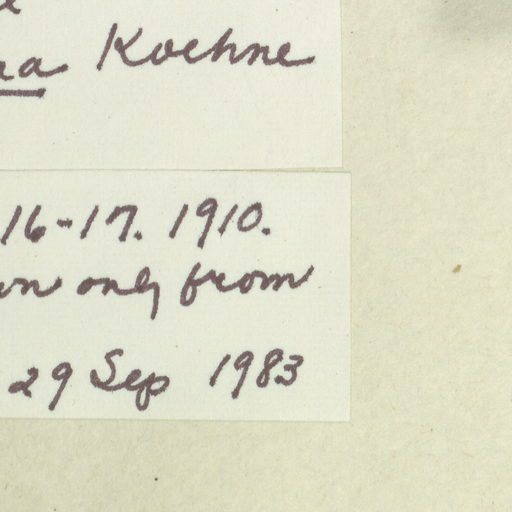 Koehne
16-17. 1910.
only from
29 Sep 1983